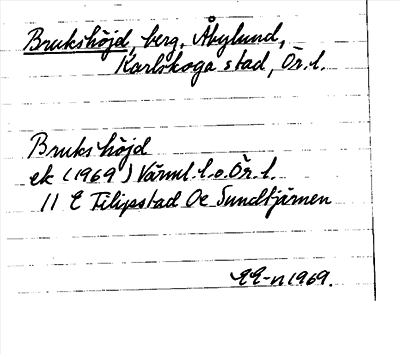 Brukshöjd, berg, Åbylund,
Karlskoga stad, Ör. l.
Brukshöjd
ek (1969) Värml. l. o. Ör. l.
11 E Filipstad Oe Sundtjärnen
1969.